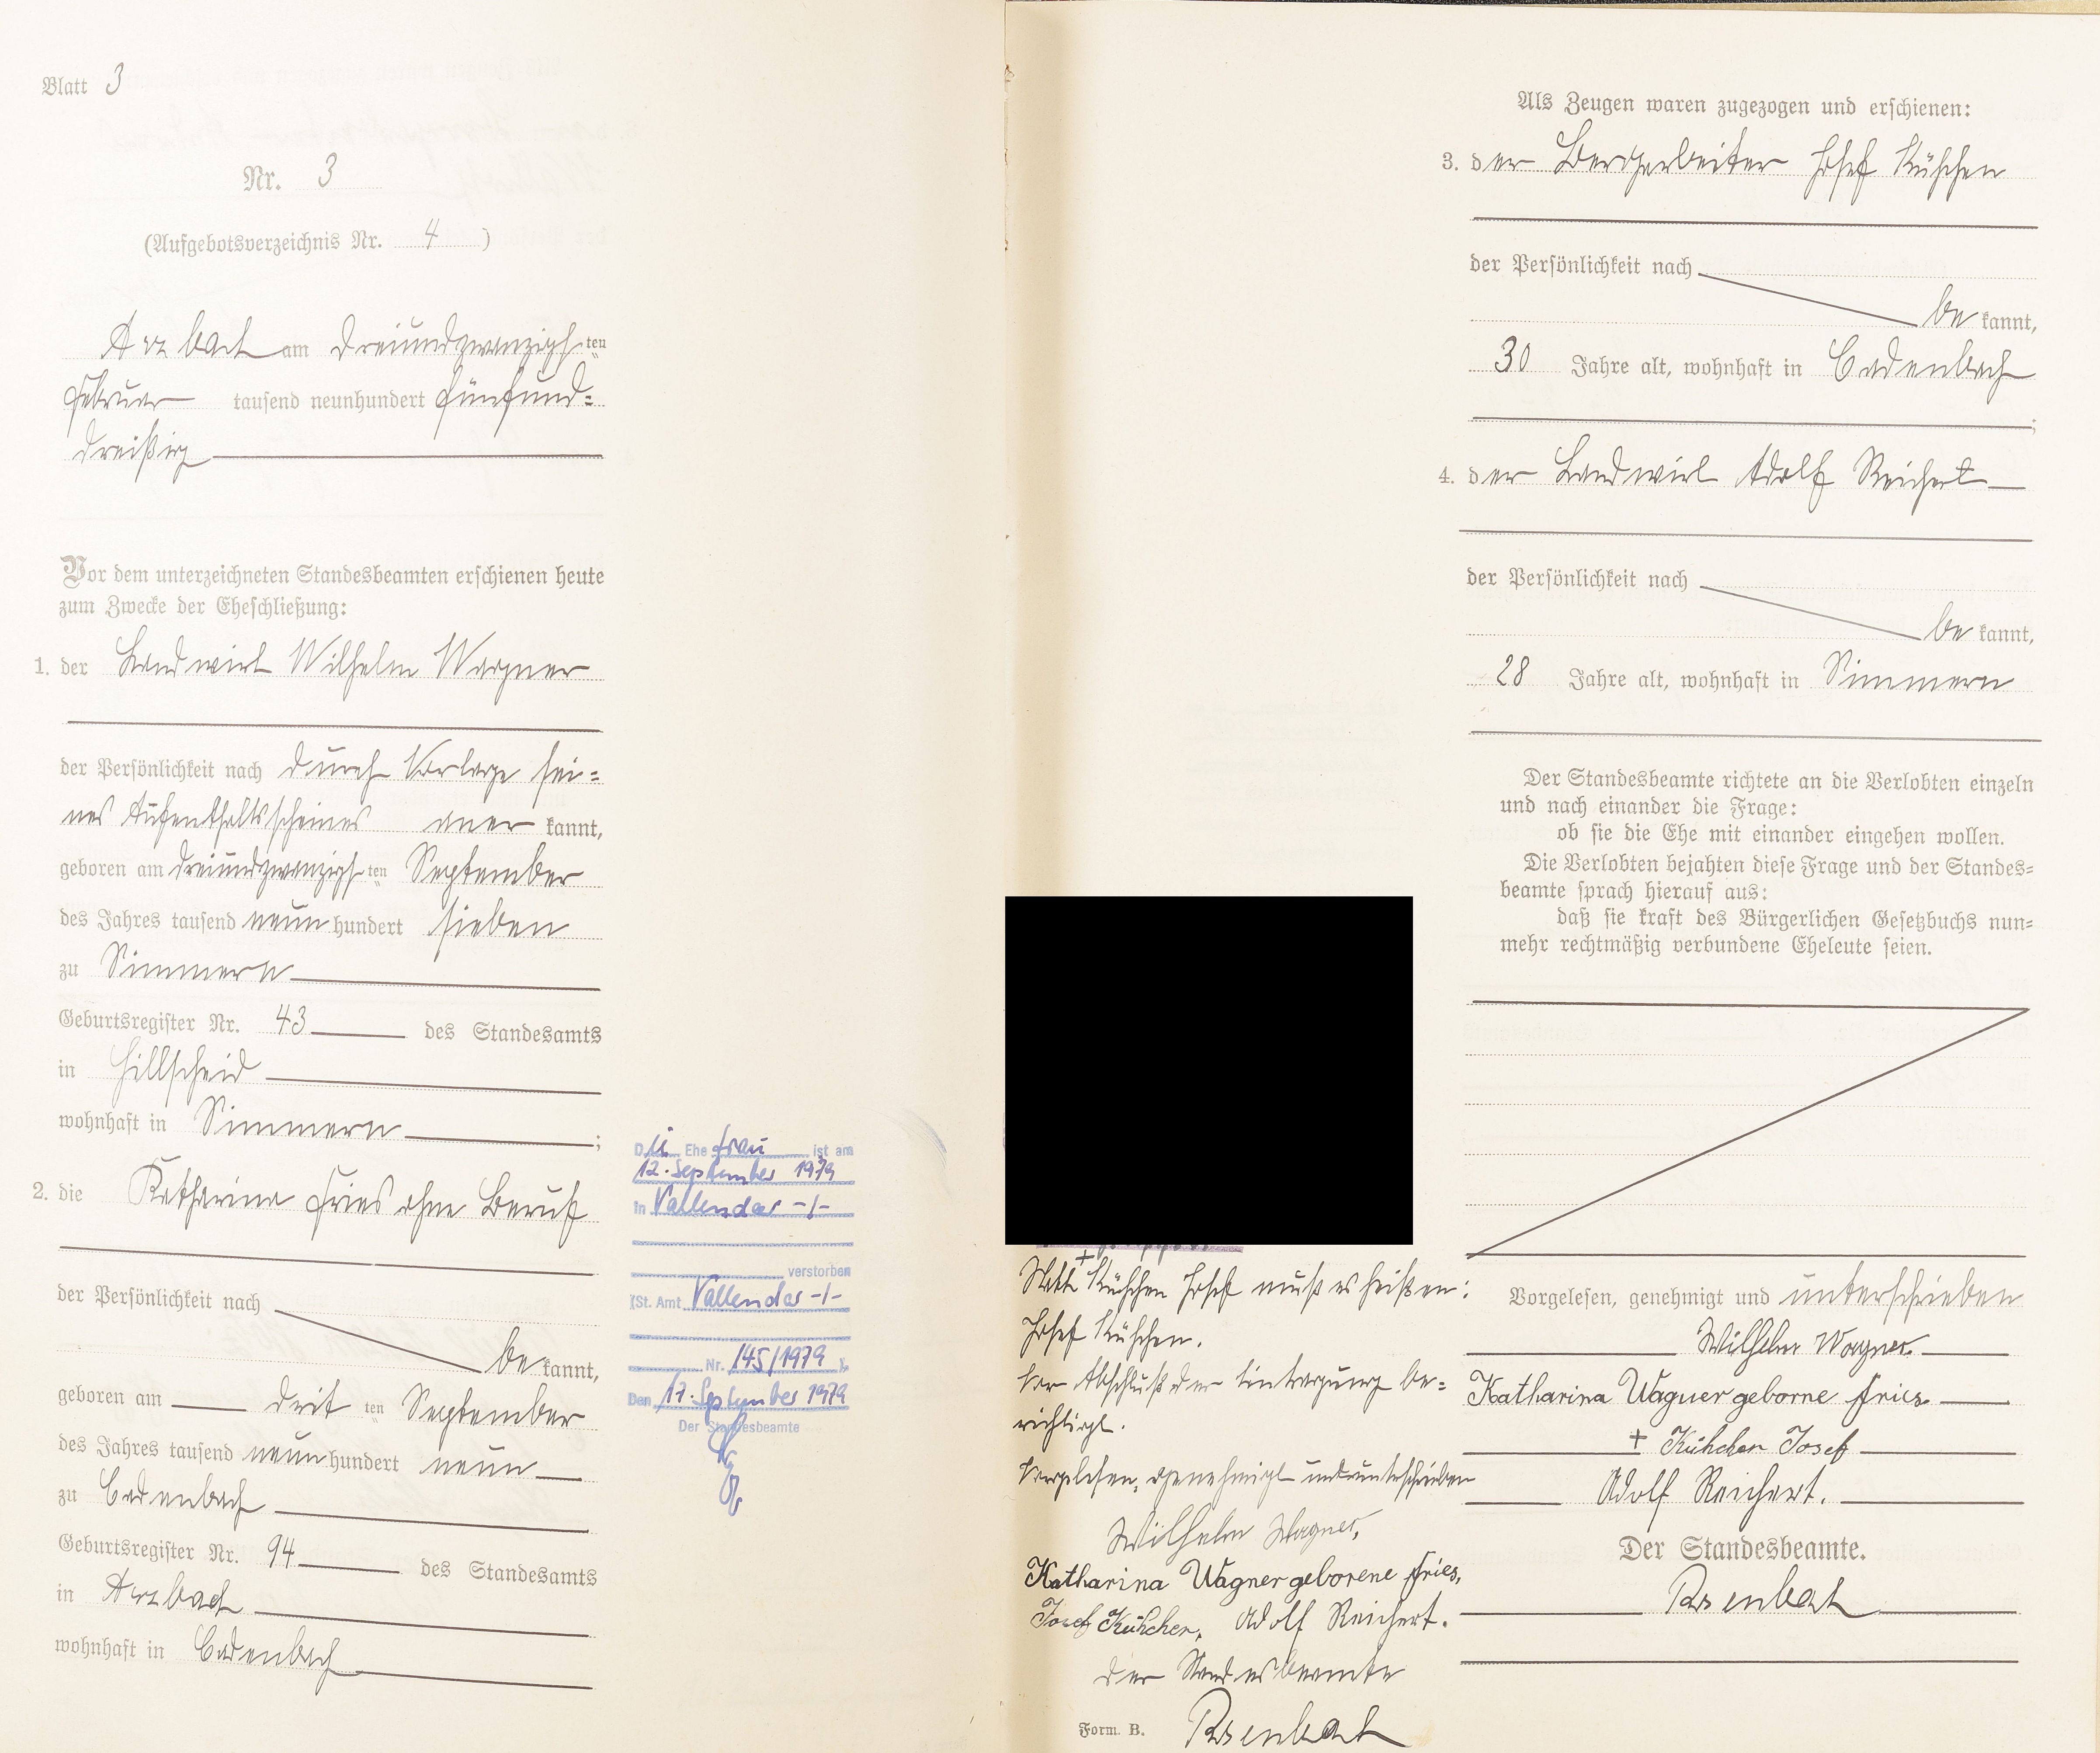 Blatt 3
Nr. 3
(Aufgebotsverzeichnis Nr. 4)
Arzbach am dreiundzwanzigsten
Februar tausend neunhundert fünfund=
dreißig
Vor dem unterzeichneten Standesbeamten erschienen heute
zum Zwecke der Eheschließung:
1. der Landwirt Wilhelm Wagner
der Persönlichkeit nach durch Vorlage sei=
nes Aufenthaltsscheines aner kannt,
geboren am dreiundzwanzigsten September
des Jahres tausend neun hundert sieben
zu Simmern
Geburtsregister Nr. 43 des Standesamts
in Hillscheid
wohnhaft in Simmern;
2. die Katharina Fries ohne Beruf
der Persönlichkeit nach
be kannt,
geboren am dritten September
des Jahres tausend neun hundert neun
zu Cadenbach
Geburtsregister Nr. 94 des Standesamts
in Arzbach
wohnhaft in Cadenbach
Die Ehefrau ist am
12. September 1979
in Vallendar -/-
verstorben
(St. Amt Vallendar -/-
Nr. 145/1979 ).
Den 17. September 1979
Der Standesbeamte
Als Zeugen waren zugezogen und erschienen:
3. der Bergarbeiter Josef Kühchen
der Persönlichkeit nach
be kannt,
30 Jahre alt, wohnhaft in Cadenbach;
4. der Landwirt Adolf Reichert
der Persönlichkeit nach
be kannt,
28 Jahre alt, wohnhaft in Simmern
Der Standesbeamte richtete an die Verlobten einzeln
und nach einander die Frage:
ob sie die Ehe mit einander eingehen wollen.
Die Verlobten bejahten diese Frage und der Standes=
beamte sprach hierauf aus:
daß sie kraft des Bürgerlichen Gesetzbuchs nun=
mehr rechtmäßig verbundene Eheleute seien.
Vorgelesen, genehmigt und unterschrieben
Wilhelm Wagner.
Katharina Wagner geborne Fries
+ Kühchen Josef
Adolf Reichert.
Der Standesbeamte.
Rosenbach
+
Statt Kühchen Josef muß es heißen:
Josef Kühchen.
Vor Abschluß der Eintragung be=
richtigt.
Vorgelesen, genehmigt und unterschrieben
Wilhelm Wagner,
Katharina Wagner geborene Fries,
Josef Kühchen, Adolf Reichert.
Der Standesbeamte
Rosenbach
Form. B.